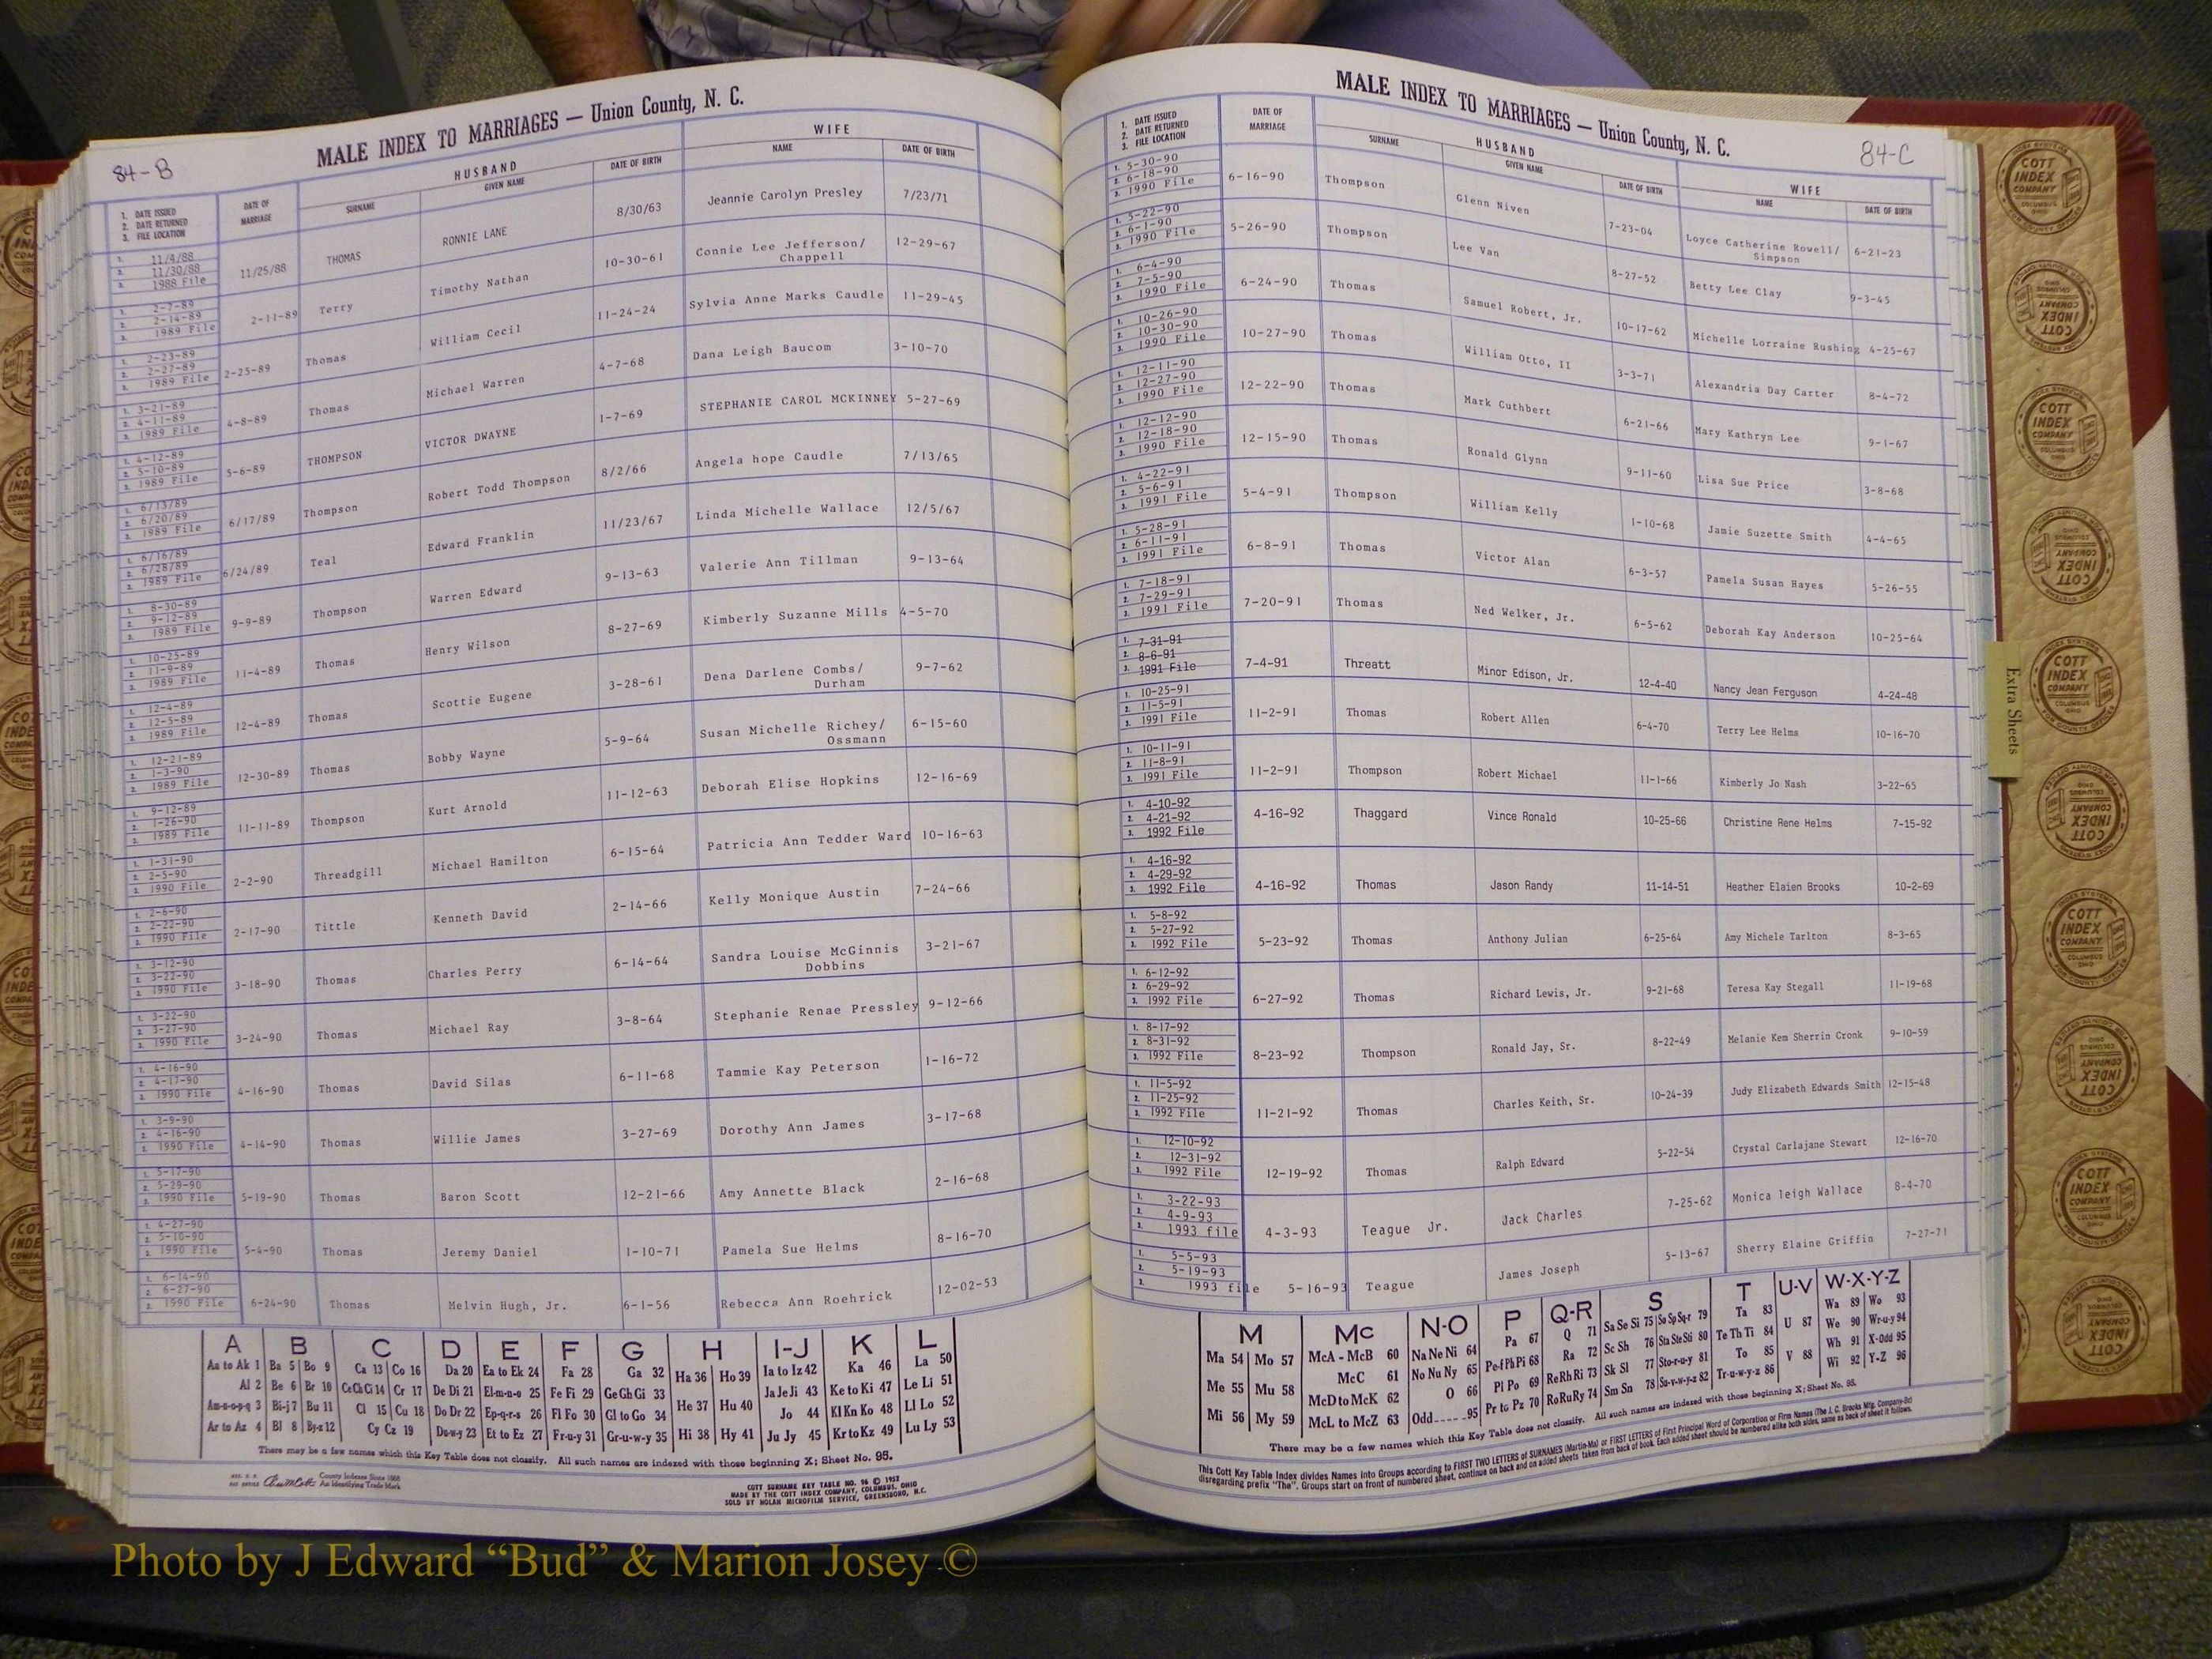 84-B
MALE INDEX TO MARRIAGES — Union County, N. C.
1. DATE ISSUED 2. DATE RETURNED 3. FILE LOCATION
DATE OF MARRIAGE
HUSBAND
SURNAME GIVEN NAME DATE OF BIRTH
WIFE
NAME DATE OF BIRTH
1. 11/4/88 2. 11/30/88 3. 1988 File 11/25/88 THOMAS RONNIE LANE 8/30/63 Jeannie Carolyn Presley 7/23/71
1. 2-7-89 2. 2-14-89 3. 1989 File 2-11-89 Terry Timothy Nathan 10-30-61 Connie Lee Jefferson/ Chappell 12-29-67
1. 2-23-89 2. 2-27-89 3. 1989 File 2-25-89 Thomas William Cecil 11-24-24 Sylvia Anne Marks Caudle 11-29-45
1. 3-21-89 2. 4-11-89 3. 1989 File 4-8-89 Thomas Michael Warren 4-7-68 Dana Leigh Baucom 3-10-70
1. 4-12-89 2. 5-10-89 3. 1989 File 5-6-89 THOMPSON VICTOR DWAYNE 1-7-69 STEPHANIE CAROL MCKINNEY 5-27-69
1. 6/13/89 2. 6/20/89 3. 1989 File 6/17/89 Thompson Robert Todd Thompson 8/2/66 Angela hope Caudle 7/13/65
1. 6/16/89 2. 6/28/89 3. 1989 File 6/24/89 Teal Edward Franklin 11/23/67 Linda Michelle Wallace 12/5/67
1. 8-30-89 2. 9-12-89 3. 1989 File 9-9-89 Thompson Warren Edward 9-13-63 Valerie Ann Tillman 9-13-64
1. 10-25-89 2. 11-9-89 3. 1989 File 11-4-89 Thomas Henry Wilson 8-27-69 Kimberly Suzanne Mills 4-5-70
1. 12-4-89 2. 12-5-89 3. 1989 File 12-4-89 Thomas Scottie Eugene 3-28-61 Dena Darlene Combs/ Durham 9-7-62
1. 12-21-89 2. 1-3-90 3. 1989 File 12-30-89 Thomas Bobby Wayne 5-9-64 Susan Michelle Richey/ Ossmann 6-15-60
1. 9-12-89 2. 1-26-90 3. 1989 File 11-11-89 Thompson Kurt Arnold 11-12-63 Deborah Elise Hopkins 12-16-69
1. 1-31-90 2. 2-5-90 3. 1990 File 2-2-90 Threadgill Michael Hamilton 6-15-64 Patricia Ann Tedder Ward 10-16-63
1. 2-6-90 2. 2-22-90 3. 1990 File 2-17-90 Tittle Kenneth David 2-14-66 Kelly Monique Austin 7-24-66
1. 3-12-90 2. 3-22-90 3. 1990 File 3-18-90 Thomas Charles Perry 6-14-64 Sandra Louise McGinnis Dobbins 3-21-67
1. 3-22-90 2. 3-27-90 3. 1990 File 3-24-90 Thomas Michael Ray 3-8-64 Stephanie Renae Pressley 9-12-66
1. 4-16-90 2. 4-17-90 3. 1990 File 4-16-90 Thomas David Silas 6-11-68 Tammie Kay Peterson 1-16-72
1. 3-9-90 2. 4-16-90 3. 1990 File 4-14-90 Thomas Willie James 3-27-69 Dorothy Ann James 3-17-68
1. 5-17-90 2. 5-29-90 3. 1990 File 5-19-90 Thomas Baron Scott 12-21-66 Amy Annette Black 2-16-68
1. 4-27-90 2. 5-10-90 3. 1990 File 5-4-90 Thomas Jeremy Daniel 1-10-71 Pamela Sue Helms 8-16-70
1. 6-14-90 2. 6-27-90 3. 1990 File 6-24-90 Thomas Melvin Hugh, Jr. 6-1-56 Rebecca Ann Roehrick 12-02-53
A B C D E F G H I-J K L
Aa to Ak 1 Ba 5 Bo 9 Ca 13 Co 16 Da 20 Ea to Ek 24 Fa 28 Ga 32 Ha 36 Ho 39 Ia to Iz 42 Ka 46 La 50
Al 2 Be 6 Br 10 Ce Ch Ci 14 Cr 17 De Di 21 El-m-n-o 25 Fe Fi 29 Ge Gh Gi 33 He 37 Hu 40 Ja Je Ji 43 Ke to Ki 47 Le Li 51
Am-n-o-p-q 3 Bi-j 7 Bu 11 Cl 15 Cu 18 Do Dr 22 Ep-q-r-s 26 Fl Fo 30 Gl to Go 34 Hi 38 Hy 41 Jo 44 Kl Kn Ko 48 Ll Lo 52
Ar to Az 4 Bl 8 By-z 12 Cy Cz 19 Du-w-y 23 Et to Ez 27 Fr-u-y 31 Gr-u-w-y 35 Ju Jy 45 Kr to Kz 49 Lu Ly 53
There may be a few names which this Key Table does not classify. All such names are indexed with those beginning X; Sheet No. 95.
County Indexes Since 1888
An Identifying Trade Mark
COTT SURNAME KEY TABLE NO. 96 © 1952
MADE BY THE COTT INDEX COMPANY, COLUMBUS, OHIO
SOLD BY NOLAN MICROFILM SERVICE, GREENSBORO, N.C.
MALE INDEX TO MARRIAGES — Union County, N. C.
84-C
1. DATE ISSUED 2. DATE RETURNED 3. FILE LOCATION
DATE OF MARRIAGE
HUSBAND
SURNAME GIVEN NAME DATE OF BIRTH
WIFE
NAME DATE OF BIRTH
1. 5-30-90 2. 6-18-90 3. 1990 File 6-16-90 Thompson Glenn Niven 7-23-04 Loyce Catherine Rowell/ Simpson 6-21-23
1. 5-22-90 2. 6-1-90 3. 1990 File 5-26-90 Thompson Lee Van 8-27-52 Betty Lee Clay 9-3-45
1. 6-4-90 2. 7-5-90 3. 1990 File 6-24-90 Thomas Samuel Robert, Jr. 10-17-62 Michelle Lorraine Rushing 4-25-67
1. 10-26-90 2. 10-30-90 3. 1990 File 10-27-90 Thomas William Otto, II 3-3-71 Alexandria Day Carter 8-4-72
1. 12-11-90 2. 12-27-90 3. 1990 File 12-22-90 Thomas Mark Cuthbert 6-21-66 Mary Kathryn Lee 9-1-67
1. 12-12-90 2. 12-18-90 3. 1990 File 12-15-90 Thomas Ronald Glynn 9-11-60 Lisa Sue Price 3-8-68
1. 4-22-91 2. 5-6-91 3. 1991 File 5-4-91 Thompson William Kelly 1-10-68 Jamie Suzette Smith 4-4-65
1. 5-28-91 2. 6-11-91 3. 1991 File 6-8-91 Thomas Victor Alan 6-3-57 Pamela Susan Hayes 5-26-55
1. 7-18-91 2. 7-29-91 3. 1991 File 7-20-91 Thomas Ned Welker, Jr. 6-5-62 Deborah Kay Anderson 10-25-64
1. 7-31-91 2. 8-6-91 3. 1991 File 7-4-91 Threatt Minor Edison, Jr. 12-4-40 Nancy Jean Ferguson 4-24-48
1. 10-25-91 2. 11-5-91 3. 1991 File 11-2-91 Thomas Robert Allen 6-4-70 Terry Lee Helms 10-16-70
1. 10-11-91 2. 11-8-91 3. 1991 File 11-2-91 Thompson Robert Michael 11-1-66 Kimberly Jo Nash 3-22-65
1. 4-10-92 2. 4-21-92 3. 1992 File 4-16-92 Thaggard Vince Ronald 10-25-66 Christine Rene Helms 7-15-92
1. 4-16-92 2. 4-29-92 3. 1992 File 4-16-92 Thomas Jason Randy 11-14-51 Heather Elaien Brooks 10-2-69
1. 5-8-92 2. 5-27-92 3. 1992 File 5-23-92 Thomas Anthony Julian 6-25-64 Amy Michele Tarlton 8-3-65
1. 6-12-92 2. 6-29-92 3. 1992 File 6-27-92 Thomas Richard Lewis, Jr. 9-21-68 Teresa Kay Stegall 11-19-68
1. 8-17-92 2. 8-31-92 3. 1992 File 8-23-92 Thompson Ronald Jay, Sr. 8-22-49 Melanie Kem Sherrin Cronk 9-10-59
1. 11-5-92 2. 11-25-92 3. 1992 File 11-21-92 Thomas Charles Keith, Sr. 10-24-39 Judy Elizabeth Edwards Smith 12-15-48
1. 12-10-92 2. 12-31-92 3. 1992 File 12-19-92 Thomas Ralph Edward 5-22-54 Crystal Carlajane Stewart 12-16-70
1. 3-22-93 2. 4-9-93 3. 1993 file 4-3-93 Teague Jr. Jack Charles 7-25-62 Monica leigh Wallace 8-4-70
1. 5-5-93 2. 5-19-93 3. 1993 file 5-16-93 Teague James Joseph 5-13-67 Sherry Elaine Griffin 7-27-71
M Mc N-O P Q-R S T U-V W-X-Y-Z
Ma 54 Mo 57 McA - McB 60 Na Ne Ni 64 Pa 67 Q 71 Sa Se Si 75 So Sp Sq-r 79 Ta 83 U 87 Wa 89 Wo 93
Me 55 Mu 58 McC 61 No Nu Ny 65 Pe-f Ph Pi 68 Ra 72 Sc Sh 76 Sta Ste Sti 80 Te Th Ti 84 V 88 We 90 Wr-u-y 94
Mi 56 My 59 McD to McK 62 O 66 Pl Po 69 Re Rh Ri 73 Sk Sl 77 Sto-r-u-y 81 To 85 Wh 91 X-Odd 95
McL to McZ 63 Odd 95 Pr to Pz 70 Ro Ru Ry 74 Sm Sn 78 Su-v-w-y-z 82 Tr-u-w-y-z 86 Wi 92 Y-Z 96
There may be a few names which this Key Table does not classify. All such names are indexed with those beginning X; Sheet No. 95.
This Cott Key Table Index divides Names into Groups according to FIRST TWO LETTERS of SURNAMES (Martin-Ma) or FIRST LETTERS of First Principal Word of Corporation or Firm Names (The J. C. Brooks Mfg. Company-Br)
disregarding prefix "The". Groups start on front of numbered sheet, continue on back and on added sheets taken from back of book. Each added sheet should be numbered alike both sides, same as back of sheet it follows.
Extra Sheets
COTT INDEX COMPANY COLUMBUS OHIO
Photo by J Edward “Bud” & Marion Josey ©